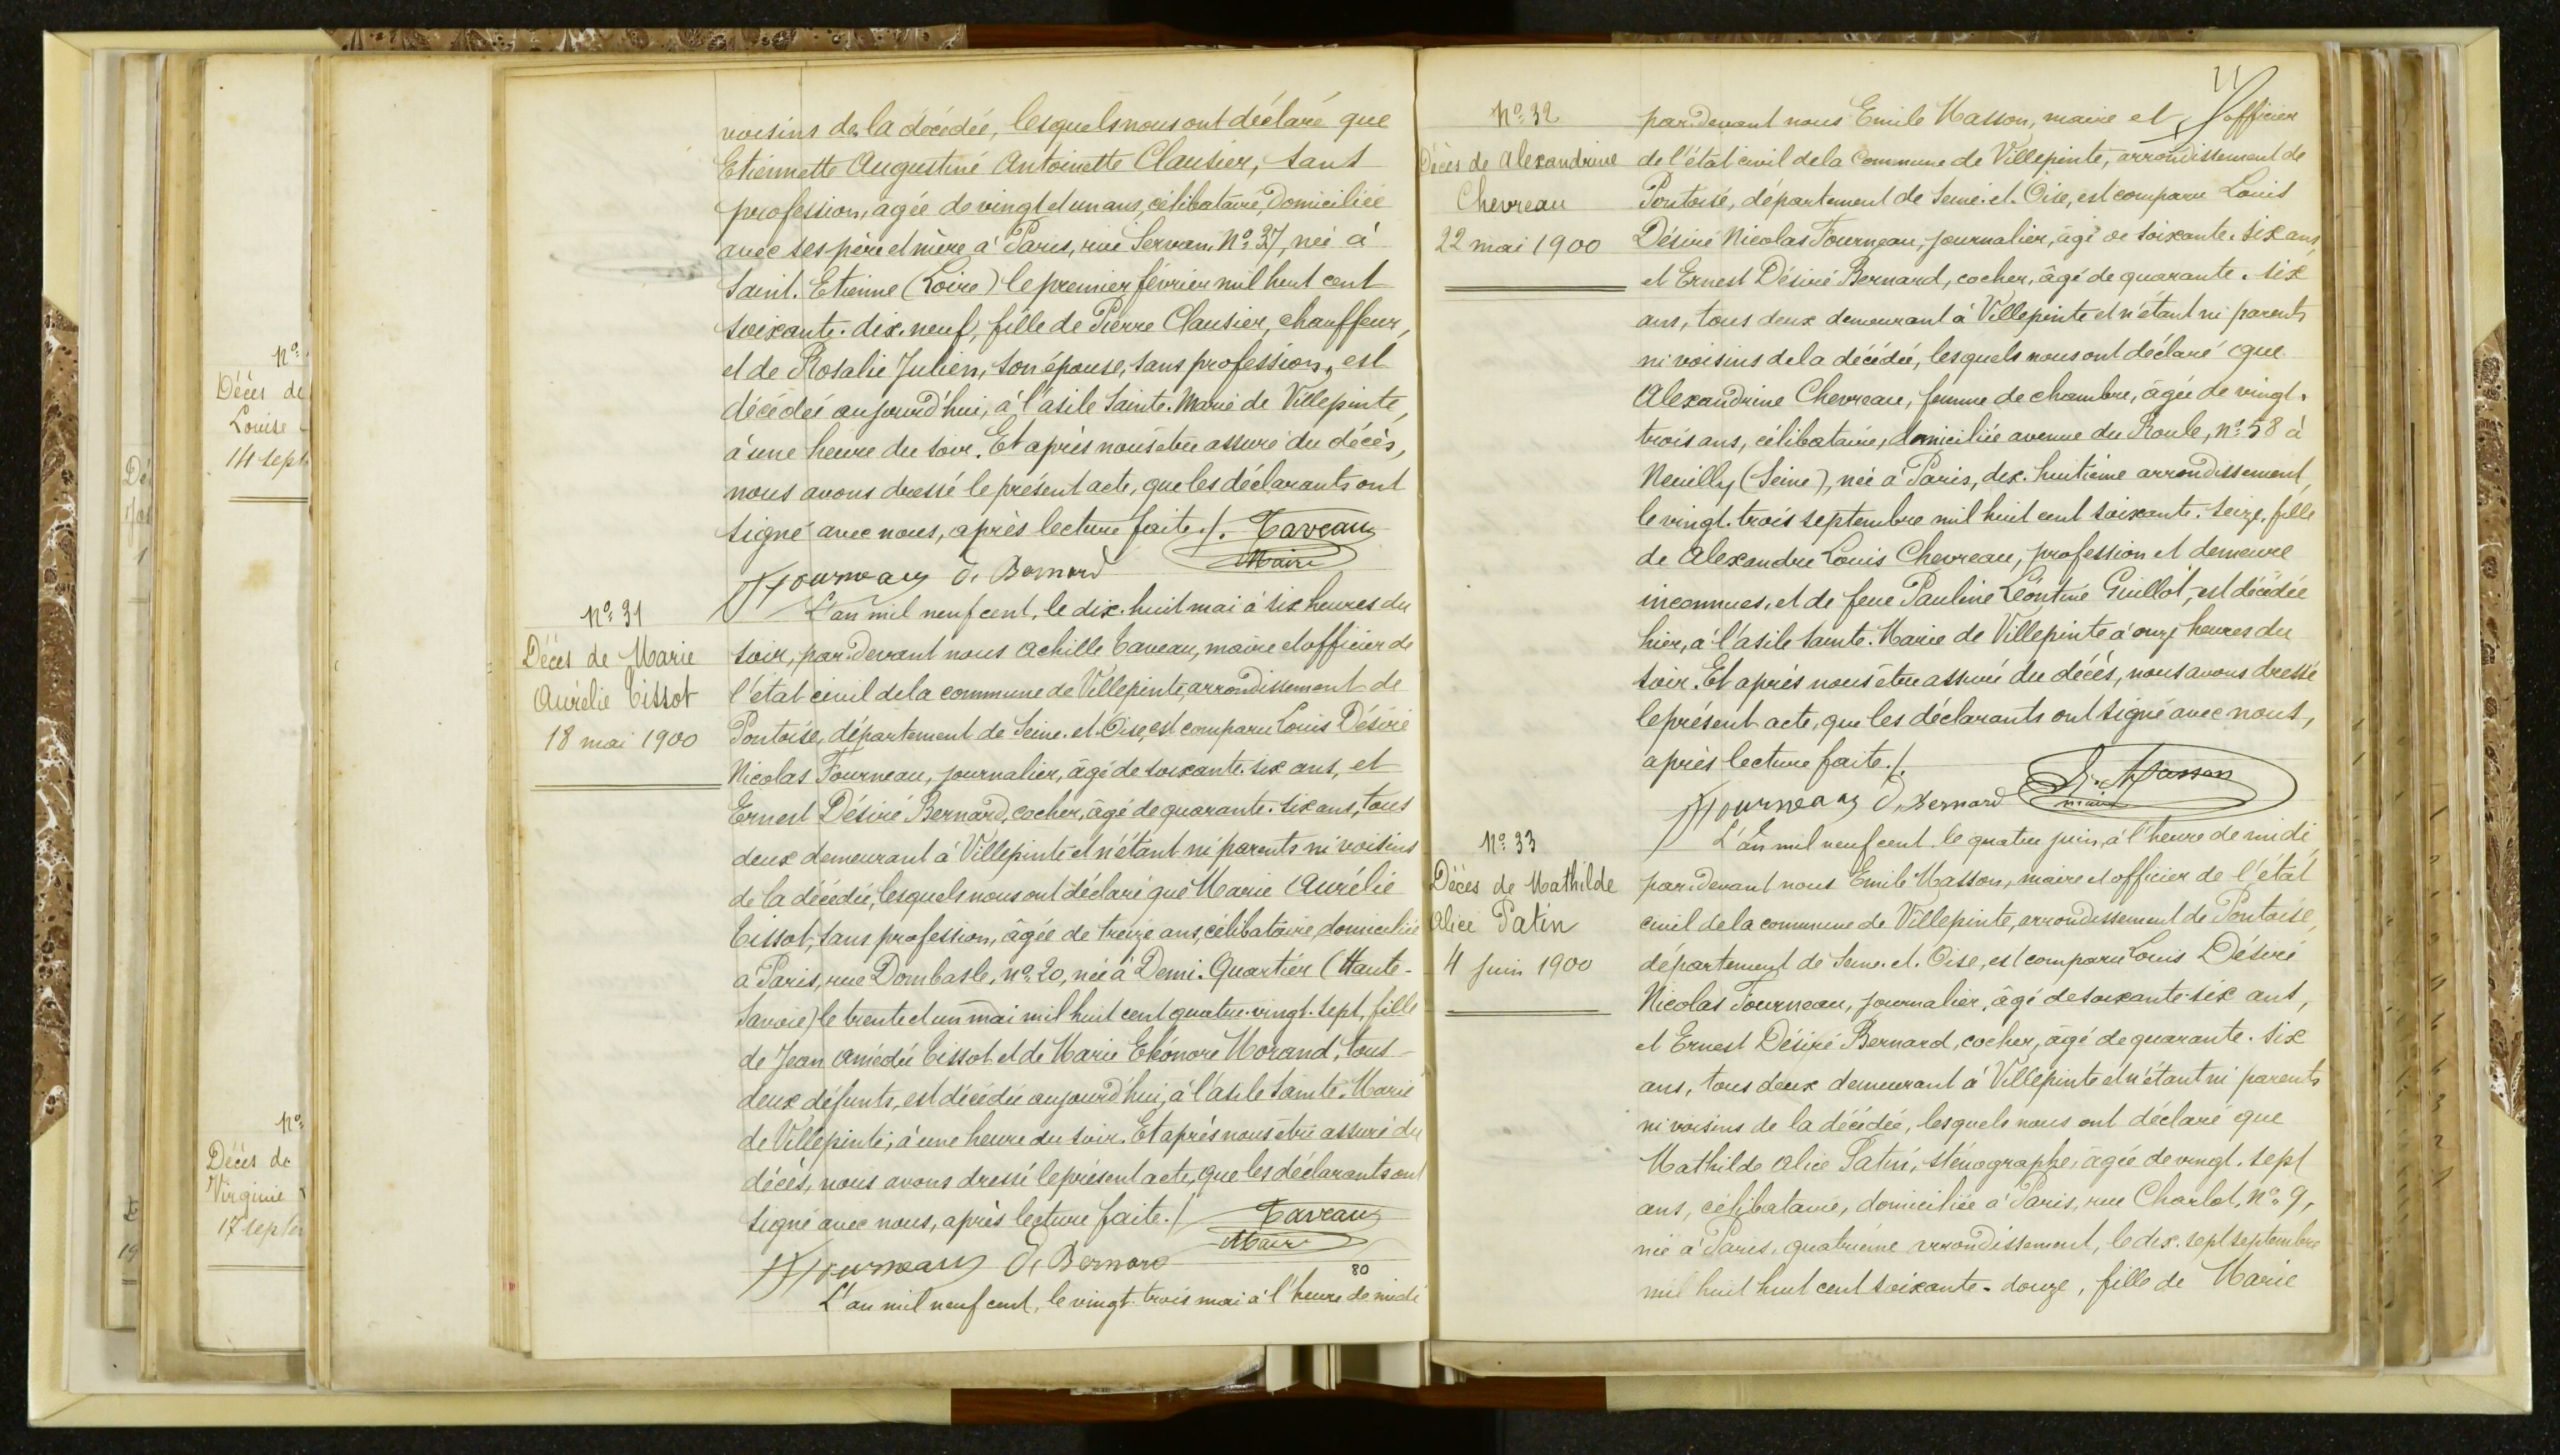 voisins de la décédée, lesquels nous ont déclaré que
Etiennette Augustine Antoinette Clausier, sans
profession, agée de vingt et un ans, célibataire, domiciliée
avec ses père et mère à Paris, rue Servan, N° 37, née à
Saint-Etienne (Loire) le premier février mil huit cent
soixante-dix-neuf, fille de Pierre Clausier, chauffeur,
et de Rosalie Julien, son épouse, sans profession, est
décédée aujourd'hui, à l'asile Sainte-Marie de Villepinte,
à une heure du soir. Et après nous être assuré du décès,
nous avons dressé le présent acte, que les déclarants ont
signé avec nous, après lecture faite./. Taveau
Maire
Fourneau D. Bernard
N° 31
Décès de Marie
Aurélie Tissot
18 mai 1900
L'an mil neuf cent, le dix-huit mai à six heures du
soir, par-devant nous Achille Taveau, maire et officier de
l'état civil de la commune de Villepinte, arrondissement de
Pontoise, département de Seine-et-Oise, est comparu Louis Désiré
Nicolas Fourneau, journalier, âgé de soixante-six ans, et
Ernest Désiré Bernard, cocher, âgé de quarante-six ans, tous
deux demeurant à Villepinte et n'étant ni parents ni voisins
de la décédée, lesquels nous ont déclaré que Marie Aurélie
Tissot, sans profession, âgée de treize ans, célibataire, domiciliée
à Paris, rue Dombasle, n° 20, née à Demi-Quartier (Haute-
Savoie) le trente et un mai mil huit cent quatre-vingt-sept, fille
de Jean Amédée Tissot et de Marie Eléonore Morand, tous
deux défunts, est décédée aujourd'hui, à l'asile Sainte-Marie
de Villepinte, à une heure du soir. Et après nous être assuré du
décès, nous avons dressé le présent acte, que les déclarants ont
signé avec nous, après lecture faite./. Taveau
Maire
Fourneau D. Bernard
80
L'an mil neuf cent, le vingt-trois mai à l'heure de midi
11
N° 32
Décès de Alexandrine
Chevreau
22 mai 1900
par-devant nous Emile Masson, maire et officier
de l'état civil de la commune de Villepinte, arrondissement de
Pontoise, département de Seine-et-Oise, est comparu Louis
Désiré Nicolas Fourneau, journalier, âgé de soixante-six ans,
et Ernest Désiré Bernard, cocher, âgé de quarante-six
ans, tous deux demeurant à Villepinte et n'étant ni parents
ni voisins de la décédée, lesquels nous ont déclaré que
Alexandrine Chevreau, femme de chambre, âgée de vingt-
trois ans, célibataire, domiciliée avenue du Roule, n° 58 à
Neuilly (Seine), née à Paris, dix-huitième arrondissement,
le vingt-trois septembre mil huit cent soixante-seize, fille
de Alexandre Louis Chevreau, profession et demeure
inconnues, et de feue Pauline Léontine Guillot, est décédée
hier, à l'asile Sainte-Marie de Villepinte à onze heures du
soir. Et après nous être assuré du décès, nous avons dressé
le présent acte, que les déclarants ont signé avec nous,
après lecture faite./.
E. Masson
maire
Fourneau D. Bernard
N° 33
Décès de Mathilde
Alice Patin
4 juin 1900
L'an mil neuf cent, le quatre juin, à l'heure de midi,
par-devant nous Emile Masson, maire et officier de l'état
civil de la commune de Villepinte, arrondissement de Pontoise,
département de Seine-et-Oise, est comparu Louis Désiré
Nicolas Fourneau, journalier, âgé de soixante-six ans,
et Ernest Désiré Bernard, cocher, âgé de quarante-six
ans, tous deux demeurant à Villepinte et n'étant ni parents
ni voisins de la décédée, lesquels nous ont déclaré que
Mathilde Alice Patin, sténographe, âgée de vingt-sept
ans, célibataire, domiciliée à Paris, rue Charlot, n° 9,
née à Paris, quatrième arrondissement, le dix-sept septembre
mil huit huit cent soixante-douze, fille de Marie
N°
Décès de
Louise
14 sept
N°
Décès de
Virginie
17 septem